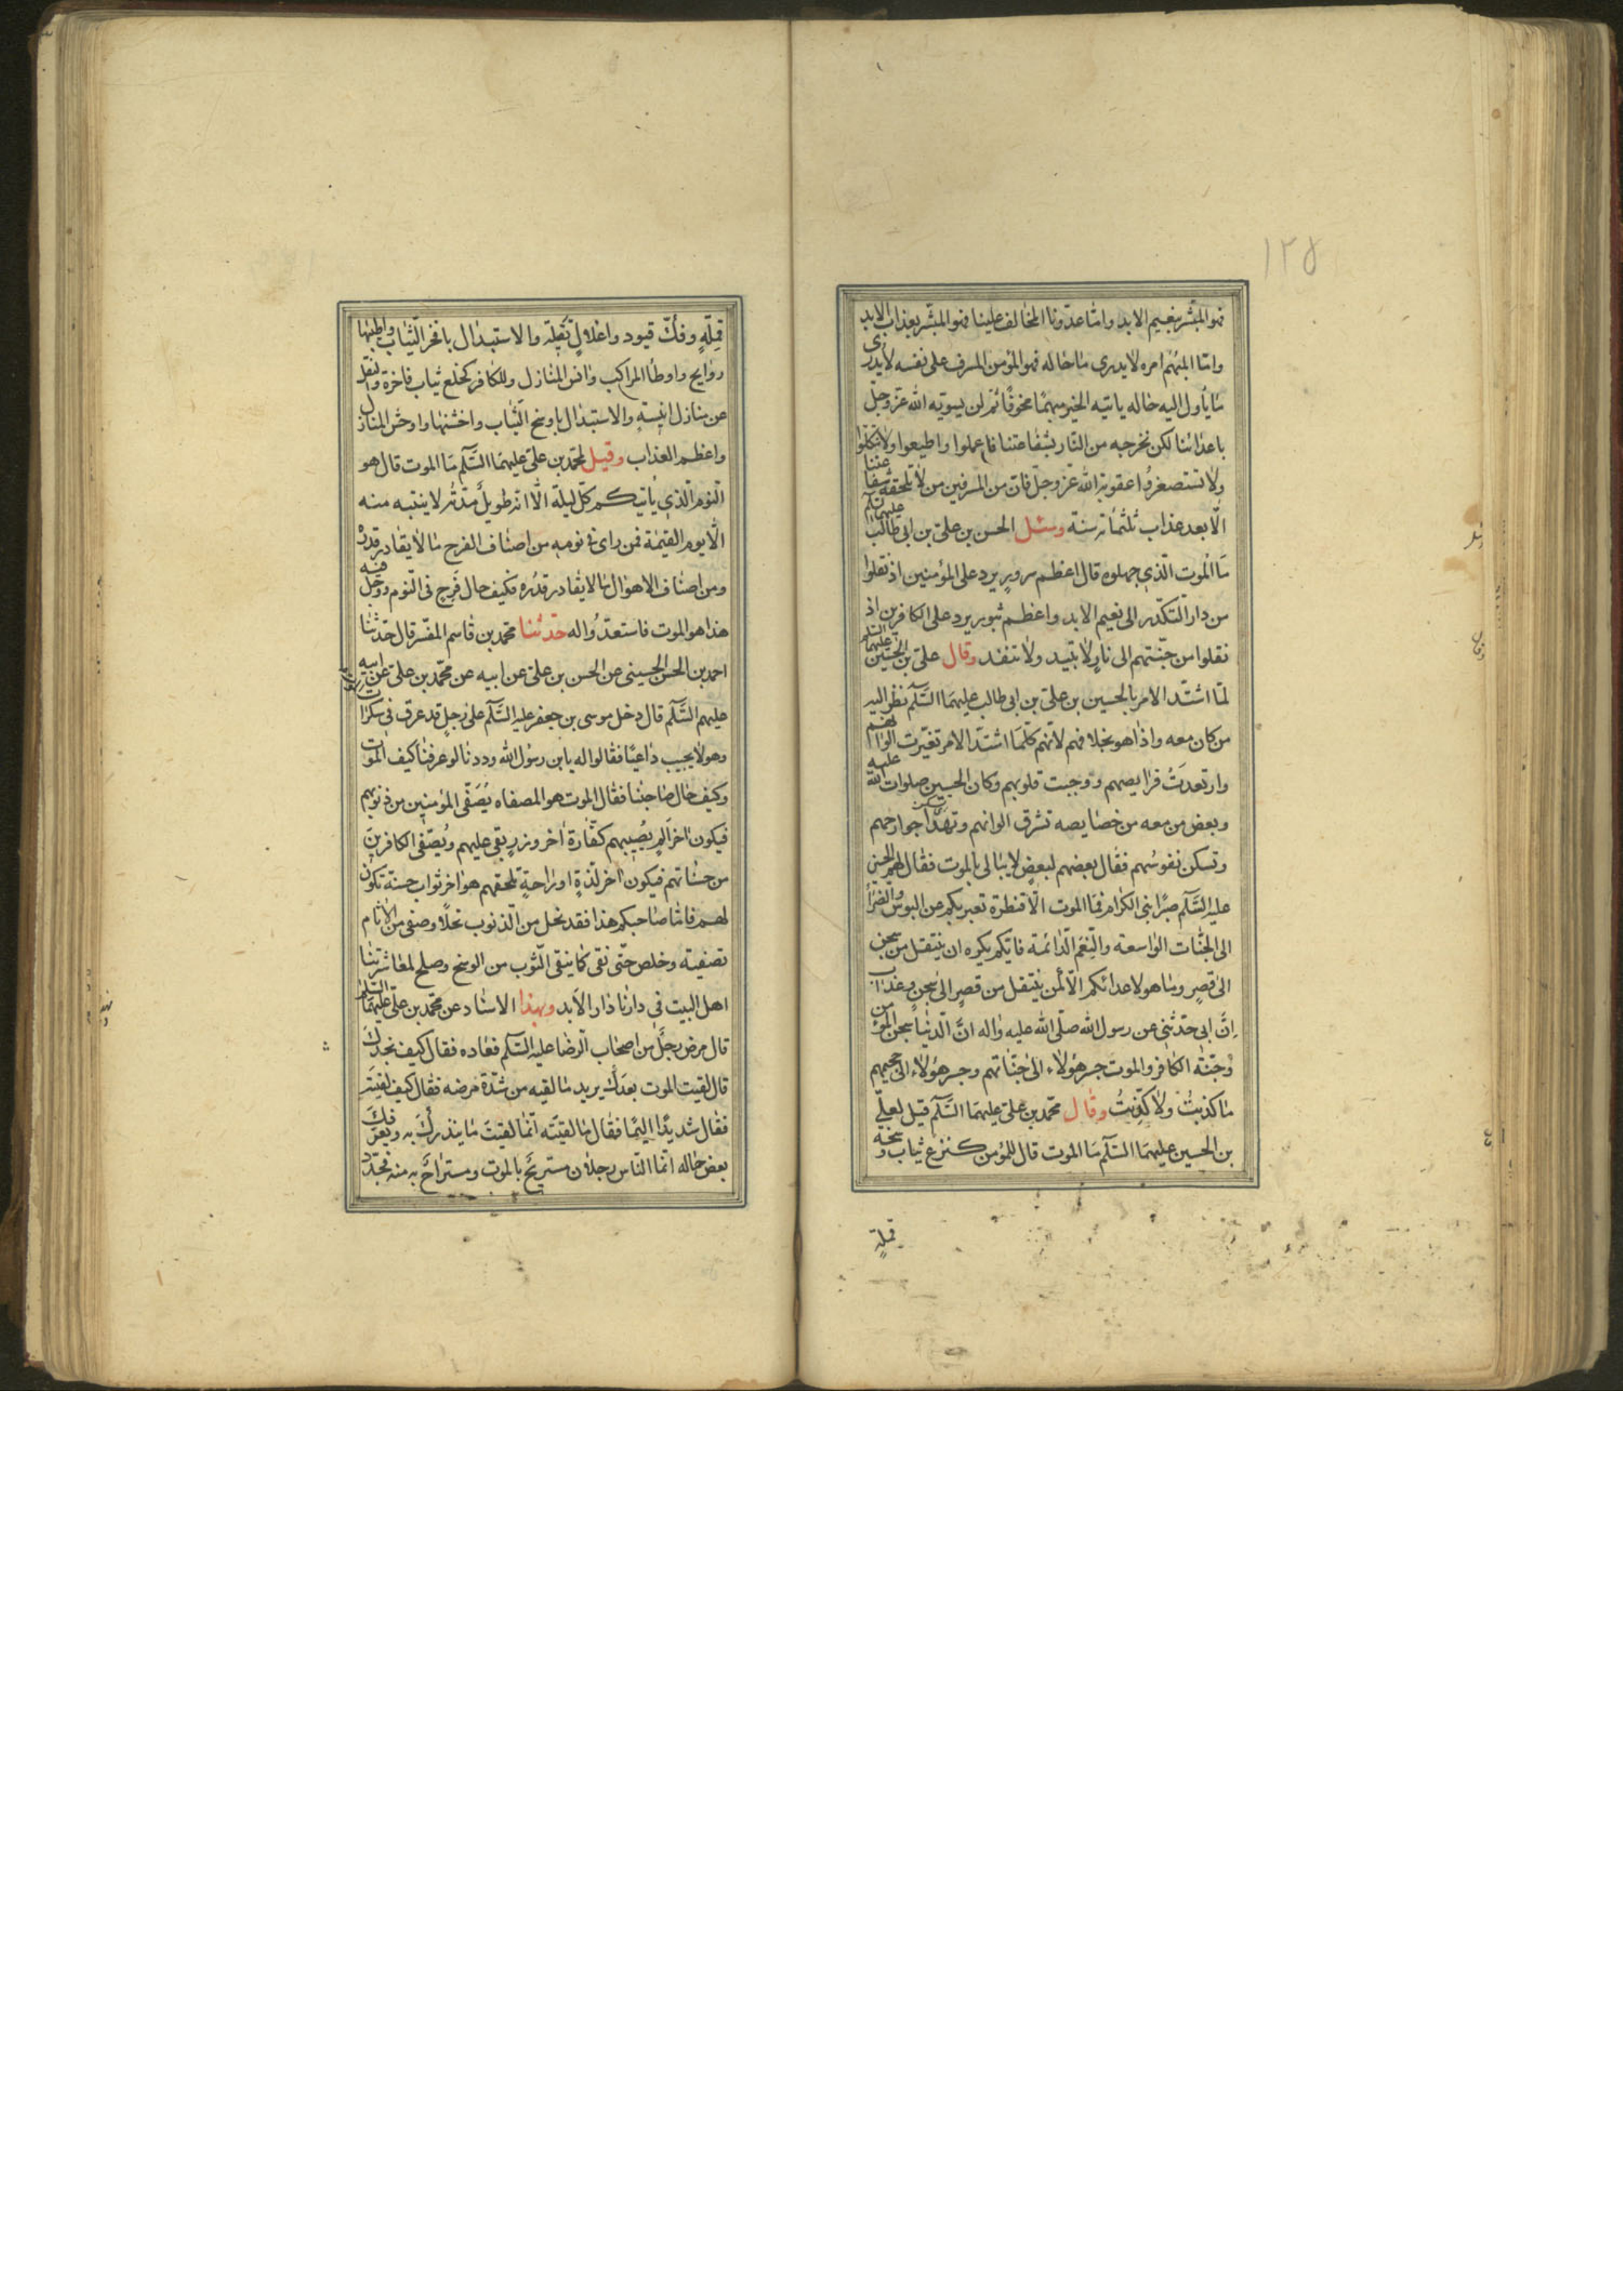 ١٢٥
فهو المبشّر بنعيم الابد واما عدوّنا المخالف علينا فهو المبشّر بعذاب الابد
واما المبهم امره لا يدرى ما حاله فهو المؤمن المسرف على نفسه لا يدرى
ما يأول اليه حاله ياتيه الخير مبهمًا مخوفًا ثم لن يسويه الله عز وجل
باعدائنا لكن نخرجه من النار بشفاعتنا فاعملوا واطيعوا ولا تتكلوا
ولا تستصغروا عقوبة الله عز وجل فان من المسرفين من لا تلحقه شفاعتنا
الا بعد عذاب ثلثمائة سنة وسئل الحسن بن على بن ابى طالب عليهما السلم
ما الموت الذى جهلوه قال اعظم سرور يرد على المؤمنين اذ نقلوا
من دار التكدر الى نعيم الابد واعظم ثبور يرد على الكافرين اذ
نقلوا من جنتهم الى نار لا تبيد ولا تنفد وقال على بن الحسين عليهما السلم
لمّا اشتد الامر بالحسين بن على بن ابى طالب عليهما السلم نظر اليه
من كان معه واذا هو بخلافهم لانهم كلما اشتد الامر تغيرت الوانهم
وارتعدت فرايصهم ووجبت قلوبهم وكان الحسين صلوات الله عليه
وبعض من معه من خصايصه تشرق الوانهم وتهدأ جوارحهم
وتسكن نفوسهم فقال بعضهم لبعض لا يبالى بالموت فقال لهم الحسين
عليه السلم صبرًا بنى الكرام فما الموت الا قنطرة تعبر بكم عن البوس والضراء
الى الجنات الواسعة والنعم الدائمة فايكم يكره ان ينتقل من سجن
الى قصر وما هو لاعدائكم الا لمن ينتقل من قصر الى سجن وعذاب
انّ ابى حدثنى عن رسول الله صلى الله عليه واله ان الدنيا سجن المؤمن
وجنة الكافر والموت جسر هؤلاء الى جناتهم وجسر هؤلاء الى جحيمهم
ما كذبت ولا كذبت وقال محمد بن على عليهما السلم قيل لعلى
بن الحسين عليهما السلم ما الموت قال للمؤمن كنزع ثياب وسخة
قملة
قملة وفك قيود واغلال ثقيلة والاستبدال بافخر الثياب واطيبها
روايح واوطأ المراكب وانس المنازل وللكافر كخلع ثياب فاخرة والنقل
عن منازل انيسة والاستبدال باوسخ الثياب واخشنها واوحش المنازل
واعظم العذاب وقيل لمحمد بن على عليهما السلم ما الموت قال هو
النوم الذى ياتيكم كل ليلة الا انه طويل مدته لا ينتبه منه
الا يوم القيمة فمن راى فى نومه من اصناف الفرح ما لا يقادر قدره
ومن اصناف الاهوال ما لا يقادر قدره فكيف حال فرح فى النوم ووجل فيه
هذا هو الموت فاستعدوا له حدثنا محمد بن قاسم المفسر قال حدثنا
احمد بن الحسن الحسينى عن الحسن بن على عن ابيه عن محمد بن على عن ابيه
عليهم السلم قال دخل موسى بن جعفر عليه السلم على رجل قد عرق فى سكرات
وهو لا يجيب داعيًا فقالوا له يابن رسول الله وددنا لو عرفنا كيف الموت
وكيف حال صاحبنا فقال الموت هو المصفاه يصفى المؤمنين من ذنوبهم
فيكون اخر الم يصيبهم كفارة اخر وزر بقى عليهم ويصفى الكافرين
من حسناتهم فيكون اخر لذة او راحة تلحقهم هو اخر ثواب حسنة تكون
لهم فاما صاحبكم هذا فقد نخل من الذنوب نخلًا وصفى من الاثام
تصفية وخلص حتى نقى كما ينقى الثوب من الوسخ وصلح لمعاشرتنا
اهل البيت فى دارنا دار الابد وبهذا الاسناد عن محمد بن على عليهما السلم
قال مرض رجل من اصحاب الرضا عليه السلم فعاده فقال كيف تجدك
قال لقيت الموت بعدك يريد ما لقيه من شدة مرضه فقال كيف لقيته
فقال شديدًا اليمًا فقال ما لقيته انما لقيت ما ينذرك به ويعرفك
بعض حاله انما الناس رجلان مستريح بالموت ومستراح به منه فجدد